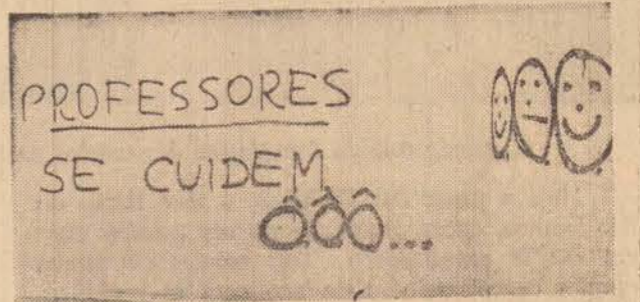 PROFESSORES
SE CUIDEM
ÔÔÔ...